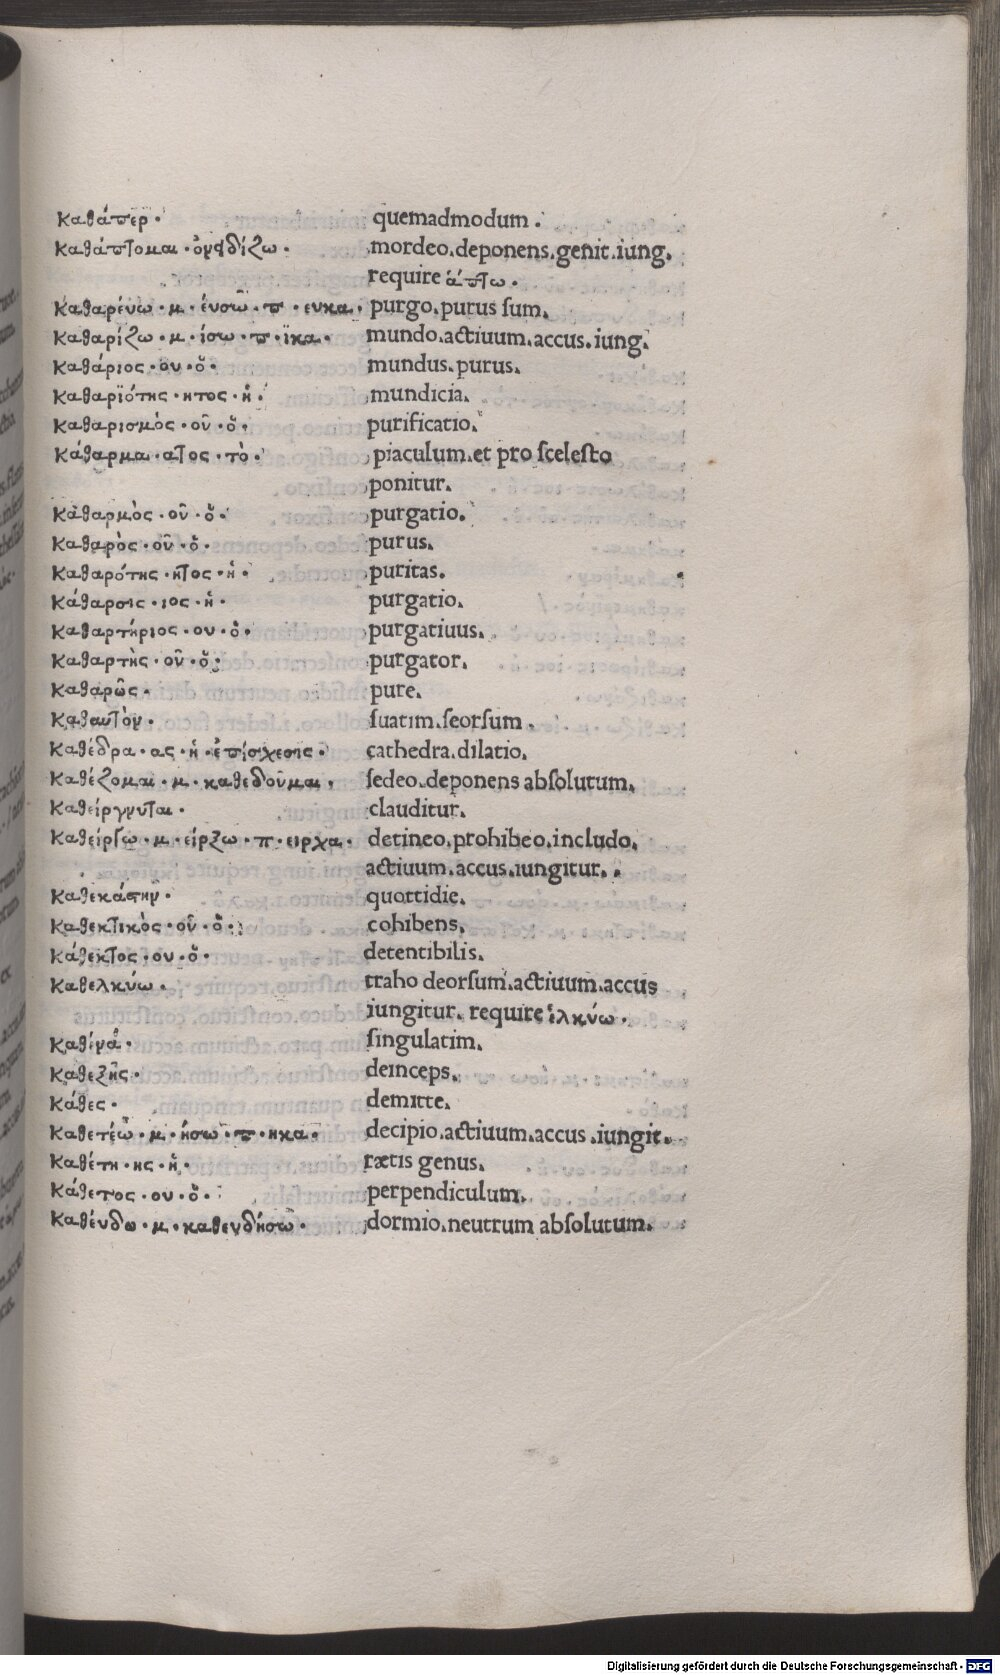 Καθάπερ· quemadmodum.
Καθάπτομαι·ὀνειδίζω· mordeo.deponens.genit.iung.
require ἅπτω.
Καθαρέυω·μ·έυσω·π·ευκα. purgo.purus ſum.
Καθαρίζω·μ·ίσω·π·ϊκα· mundo.actiuum.accus.iung.
Καθάριος·ου·ὁ· mundus.purus.
Καθαρϊότης·ητος·ἡ· mundicia.
Καθαρισμὸς·οῦ·ὁ· purificatio.
Κάθαρμα·ατος·τὸ· piaculum.et pro ſceleſto
ponitur.
Καθαρμὸς·οῦ·ὁ· purgatio.
Καθαρὸς·οῦ·ὁ· purus.
Καθαρότης·ητος·ἡ· puritas.
Κάθαρσις·ιος·ἡ· purgatio.
Καθαρτήριος·ου·ὁ· purgatiuus.
Καθαρτὴς·οῦ·ὁ· purgator.
Καθαρῶς· pure.
Καθαυτὸν· ſuatim.ſeorſum.
Καθέδρα·ας·ἡ·ἐπίσχεσις· cathedra.dilatio.
Καθέζομαι·μ·καθεδοῦμαι· ſedeo.deponens abſolutum.
Καθείργνυται· clauditur.
Καθείργω·μ·είρξω·π·ειρχα· detineo.prohibeo.includo.
actiuum.accus.iungitur.
Καθεκάστην· quottidie.
Καθεκτικὸς·οῦ·ὁ· cohibens.
Κάθεκτος·ου·ὁ· detentibilis.
Καθελκύω· traho deorſum.actiuum.accus
iungitur. require ἑλκύω.
Καθένα· ſingulatim.
Καθεξῆς· deinceps.
Κάθες· demitte.
Καθετέω·μ·ήσω·π·ηκα· decipio.actiuum.accus.iungit.
Καθέτη·ης·ἡ· rætis genus.
Κάθετος·ου·ὁ· perpendiculum.
Καθέυδω·μ·καθευδήσω· dormio.neutrum abſolutum.
Digitalisierung gefördert durch die Deutsche Forschungsgemeinschaft - DFG